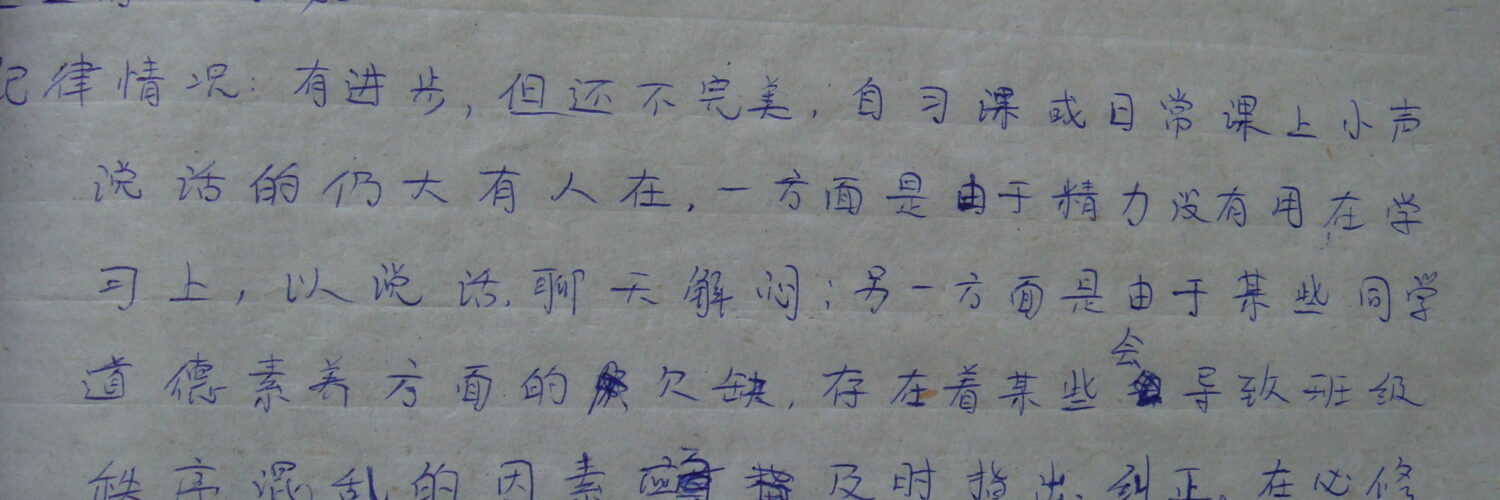 纪律情况：有进步，但还不完美，自习课或日常课上小声
说话的仍大有人在，一方面是由于精力没有用在学
习上，以说话、聊天解闷；另一方面是由于某些同学
道德素养方面的欠缺，存在着某些会导致班级
秩序混乱的因素 应 及时指出、纠正。在必修